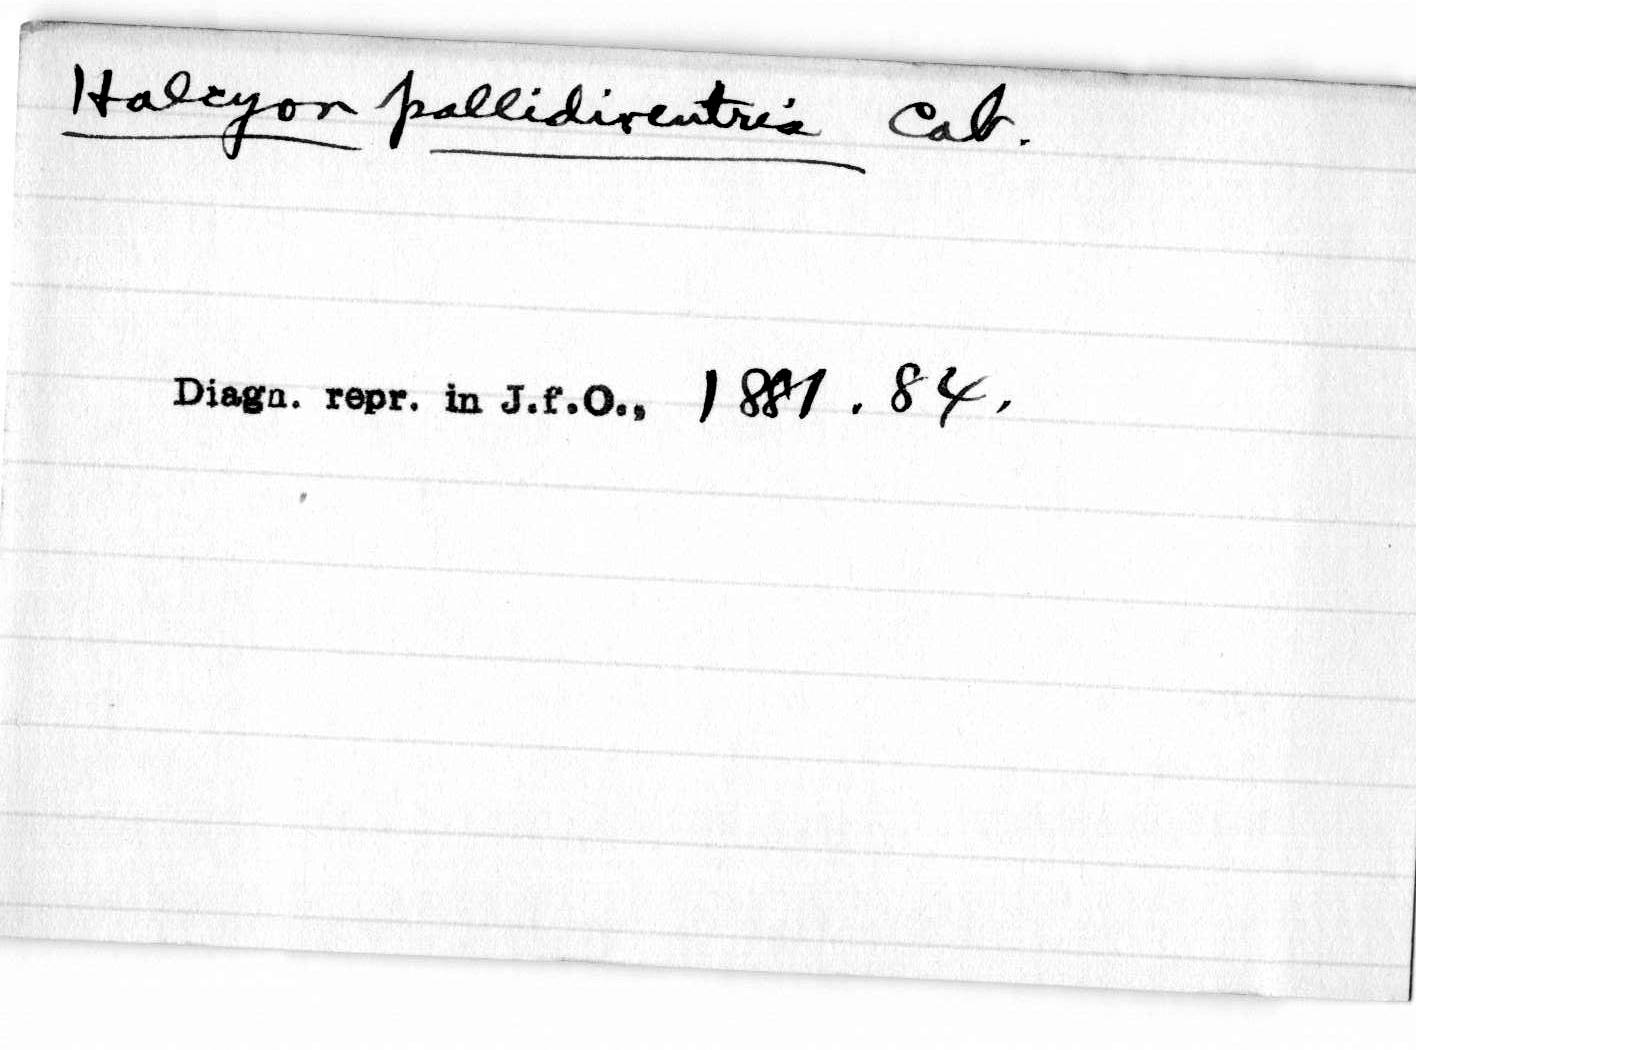 Halcyon pallidiventris Cab.
Diagn. repr. in J.f.O., 1881. 84.